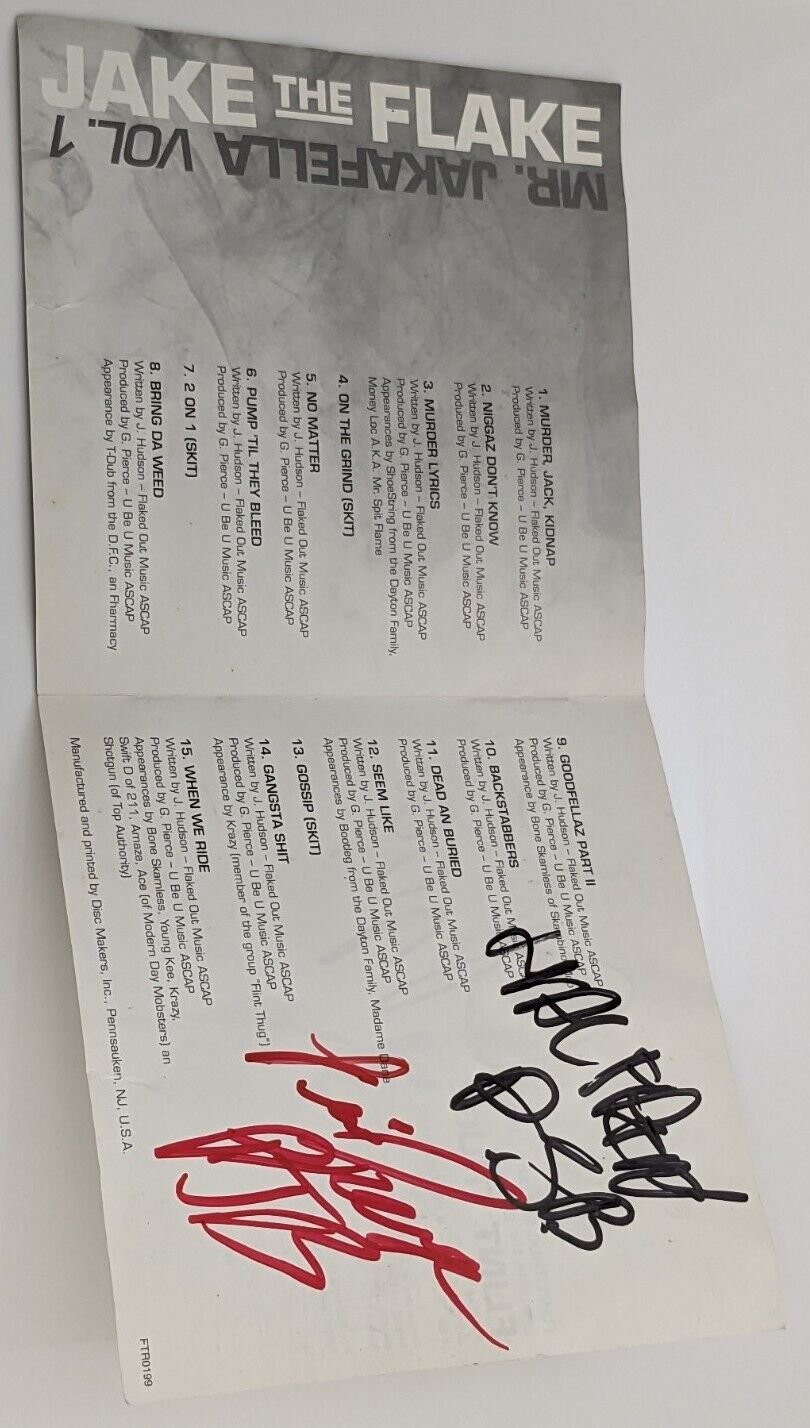 JAKE THE FLAKE
MR. JAKAFELLA VOL. 1
1. MURDER, JACK, KIDNAP
Written by J. Hudson – Flaked Out Music ASCAP
Produced by G. Pierce – U Be U Music ASCAP
2. NIGGAZ DON'T KNOW
Written by J. Hudson – Flaked Out Music ASCAP
Produced by G. Pierce – U Be U Music ASCAP
3. MURDER LYRICS
Written by J. Hudson – Flaked Out Music ASCAP
Produced by G. Pierce – U Be U Music ASCAP
Appearances by ShoeString from the Dayton Family,
Money Loc A.K.A. Mr. Spit Flame
4. ON THE GRIND (SKIT)
5. NO MATTER
Written by J. Hudson – Flaked Out Music ASCAP
Produced by G. Pierce – U Be U Music ASCAP
6. PUMP 'TIL THEY BLEED
Written by J. Hudson – Flaked Out Music ASCAP
Produced by G. Pierce – U Be U Music ASCAP
7. 2 ON 1 (SKIT)
8. BRING DA WEED
Written by J. Hudson – Flaked Out Music ASCAP
Produced by G. Pierce – U Be U Music ASCAP
Appearance by T-Dub from the D.F.C., an Fharmacy
9. GOODFELLAZ PART II
Written by J. Hudson – Flaked Out Music ASCAP
Produced by G. Pierce – U Be U Music ASCAP
Appearance by Bone Skamless of
10. BACKSTABBERS
Written by J. Hudson – Flaked Out Music ASCAP
Produced by G. Pierce – U Be U Music ASCAP
11. DEAD AN BURIED
Written by J. Hudson – Flaked Out Music ASCAP
Produced by G. Pierce – U Be U Music ASCAP
12. SEEM LIKE
Written by J. Hudson – Flaked Out Music ASCAP
Produced by G. Pierce – U Be U Music ASCAP
Appearances by Bootleg from the Dayton Family, Madame
13. GOSSIP (SKIT)
14. GANGSTA SHIT
Written by J. Hudson – Flaked Out Music ASCAP
Produced by G. Pierce – U Be U Music ASCAP
Appearance by Krazy (member of the group "Flint Thug")
15. WHEN WE RIDE
Written by J. Hudson – Flaked Out Music ASCAP
Produced by G. Pierce – U Be U Music ASCAP
Appearances by Bone Skamless, Young Kee, Krazy,
Swift D of 211, Amaze, Ace (of Modern Day Mobsters) an
Shotgun (of Top Authority)
Manufactured and printed by Disc Makers, Inc., Pennsauken, NJ, U.S.A.
FTR0199